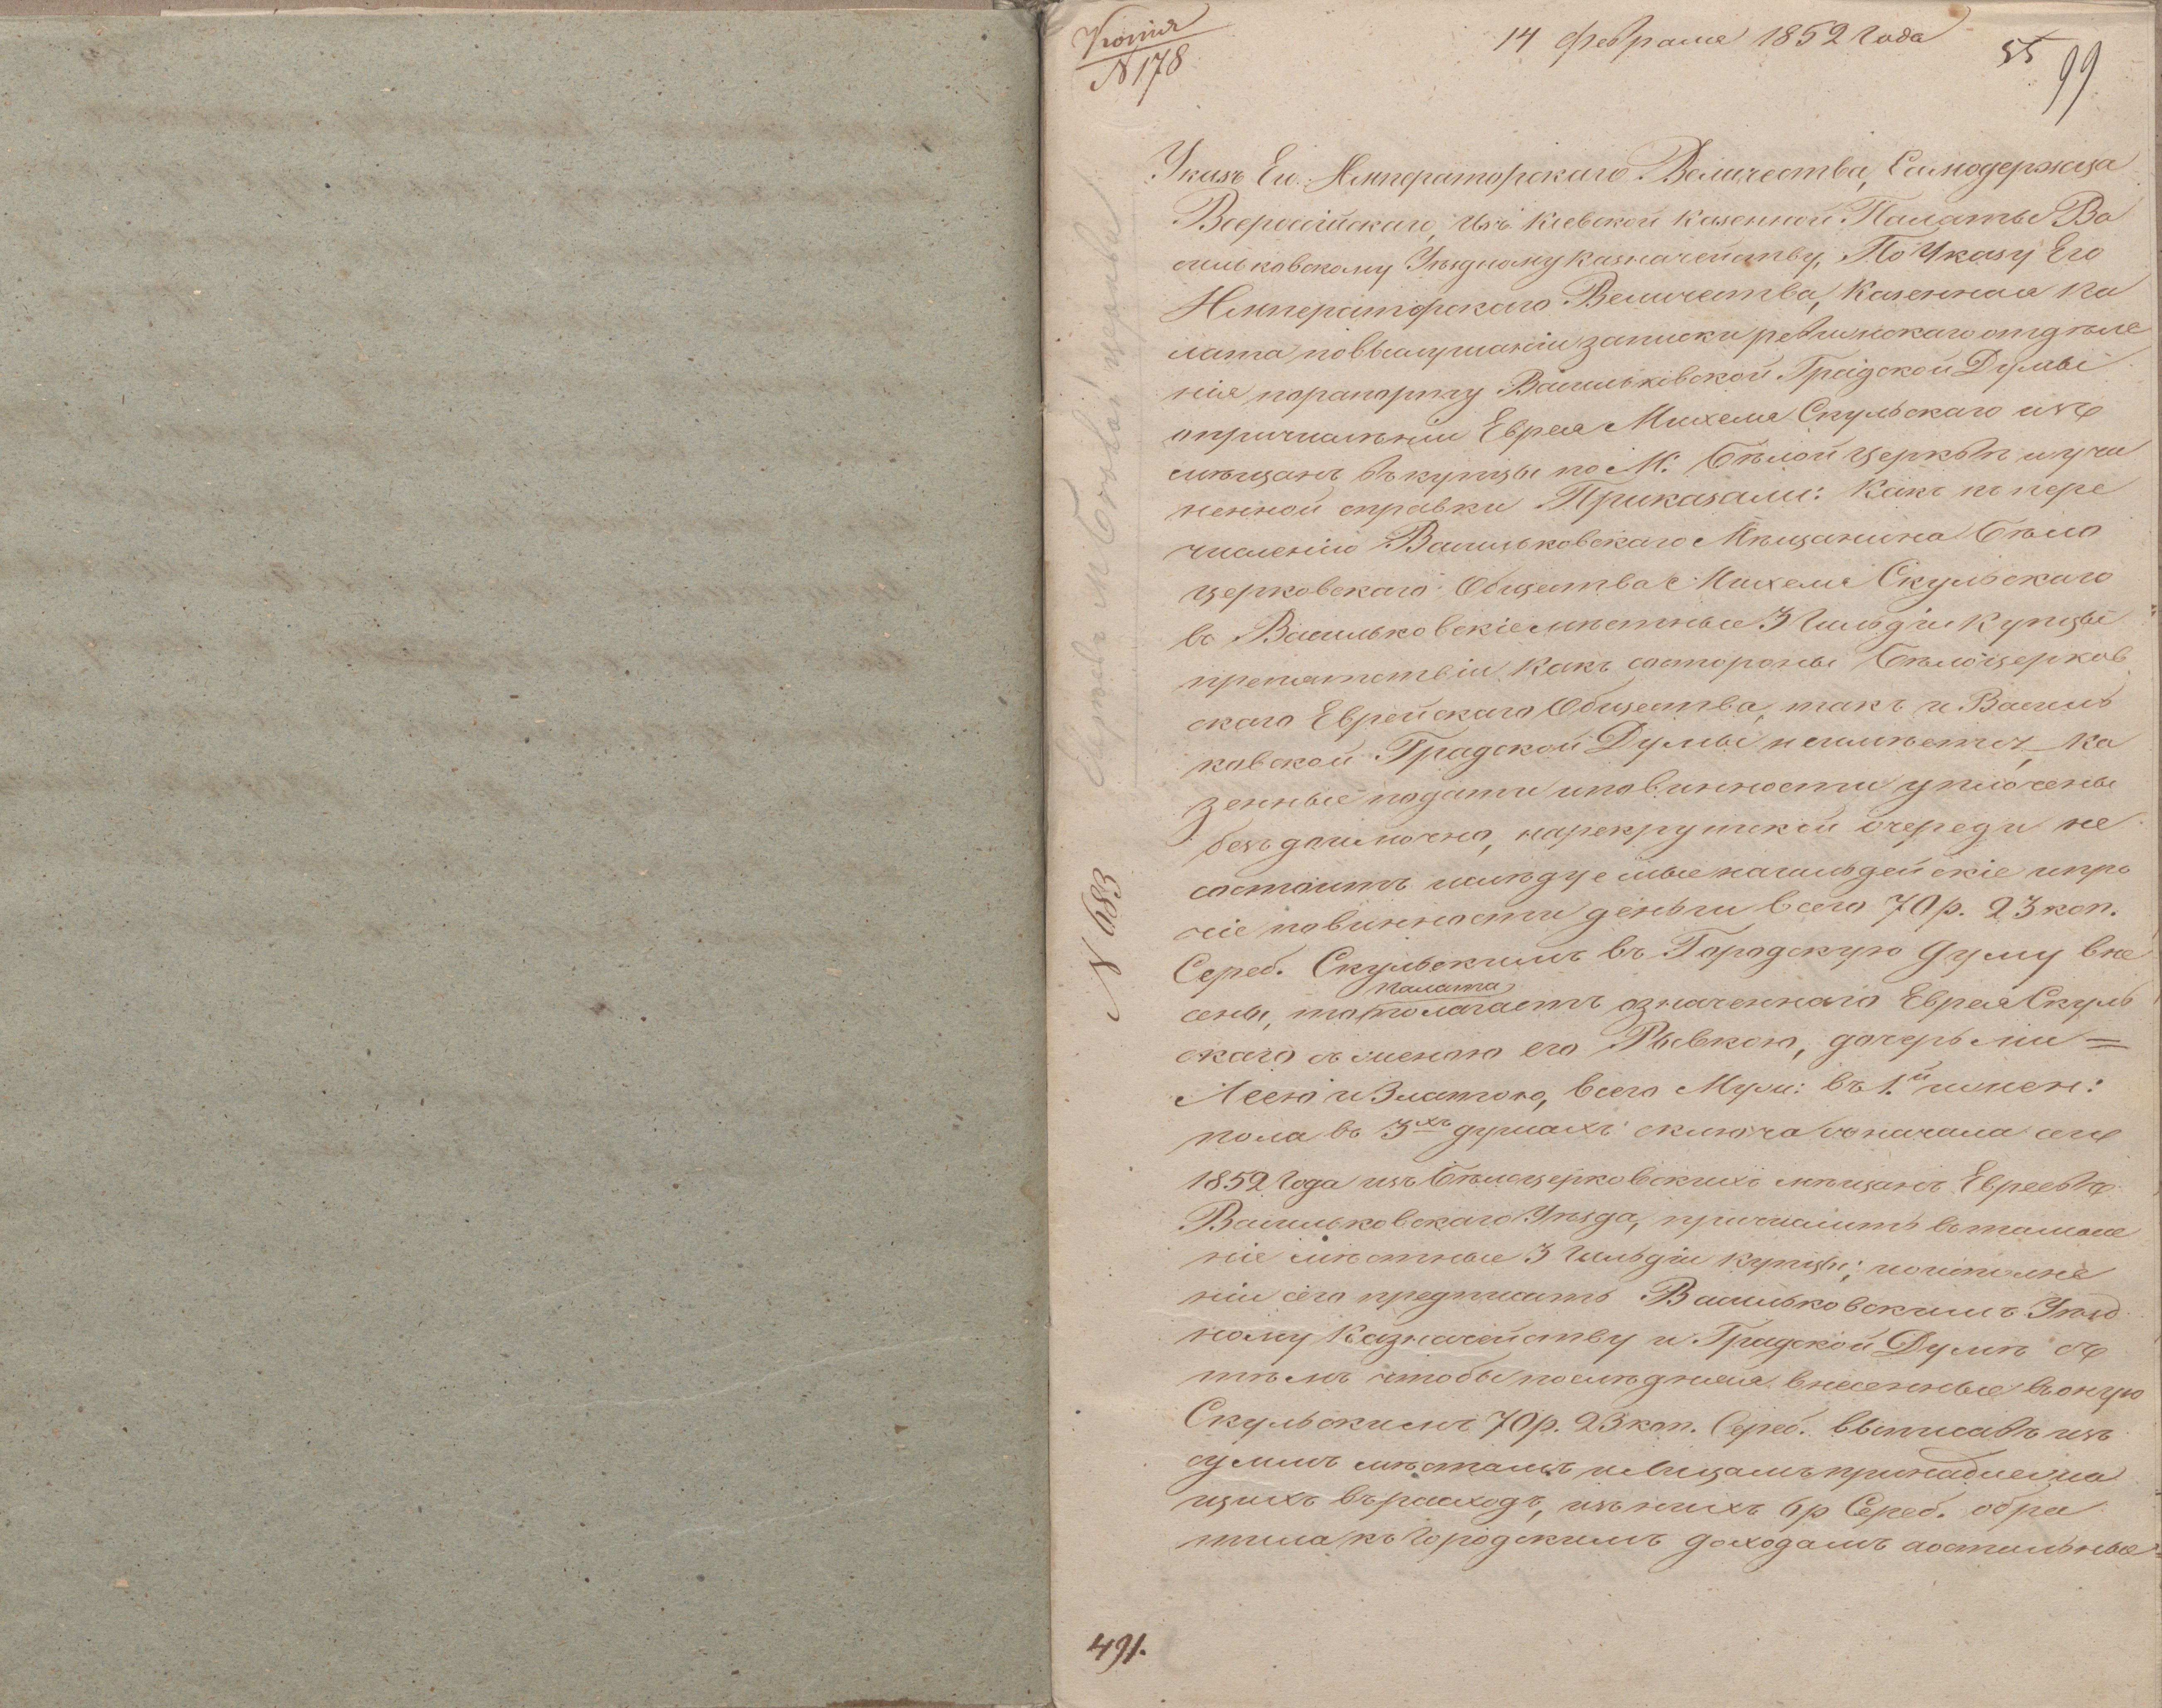 Копія
N 178
14 февраля 1852 года
55
99
Указъ Его Императорскаго Величества, Самодержца
Всероссійскаго, изъ Кіевской Казенной Палаты Ва
сильковскому Уѣздному Казначейству, По Указу Его
Императорскаго Величества, Казенная Па
лата повыслушаніи записки ревизскаго отдѣле
нія порапорту Васильковской Градской Думы
опричисленіи Еврея Михеля Скульскаго изъ
мѣщанъ въ купцы по М. Бѣлой Церквѣ и учи
ненной справки Приказали: Какъ къ пере
численію Васильковскаго Мѣщанина Бѣло
церковскаго Общества Михеля Скульскаго
въ Васильковскіе мѣстные 3 гильдіи купцы
препятствіи какъ состороны Бѣлоцерков
скаго Еврейскаго Общества, такъ и Василь
ковской Градской Думы неимѣется, ка
зенные подати иповинности уплочены
бездоимочно, нарекрутской очереди не
состоитъ ислѣдуемые нагильдейскіе ипро
чіе повинности деньги всего 70 р. 23 коп.
Сереб. Скульскимъ въ Городскую Думу вне
палата
сены, то полагаетъ означеннаго Еврея Скуль
скаго съ женою его Рывкою, дочерьми =
Леею и Златою, всего Муж: въ 1.й и жен:
пола въ 3хъ душахъ сключа съ начала сего
1852 года изъ Бѣлоцерковскихъ мѣщанъ Евреевъ
Васильковскаго Уѣзда, причислить въ тамош
ніе мѣстные 3 гильдіи купцы; поисполне
ніи сего предписать Васильковскимъ Уѣзд
ному Казначейству и Градской Думѣ съ
тѣмъ чтобы послѣдняя внесенные въ оную
Скульскимъ 70 р. 23 коп. Сереб. выписавъ изъ
суммъ мѣстамъ и лицамъ принадлежа
щихъ въ расходъ, изъ нихъ 6 р Сереб. обра
тила къ городскимъ доходамъ аостальные =
N 683
Евреевъ М Бѣлой Церкви
491.